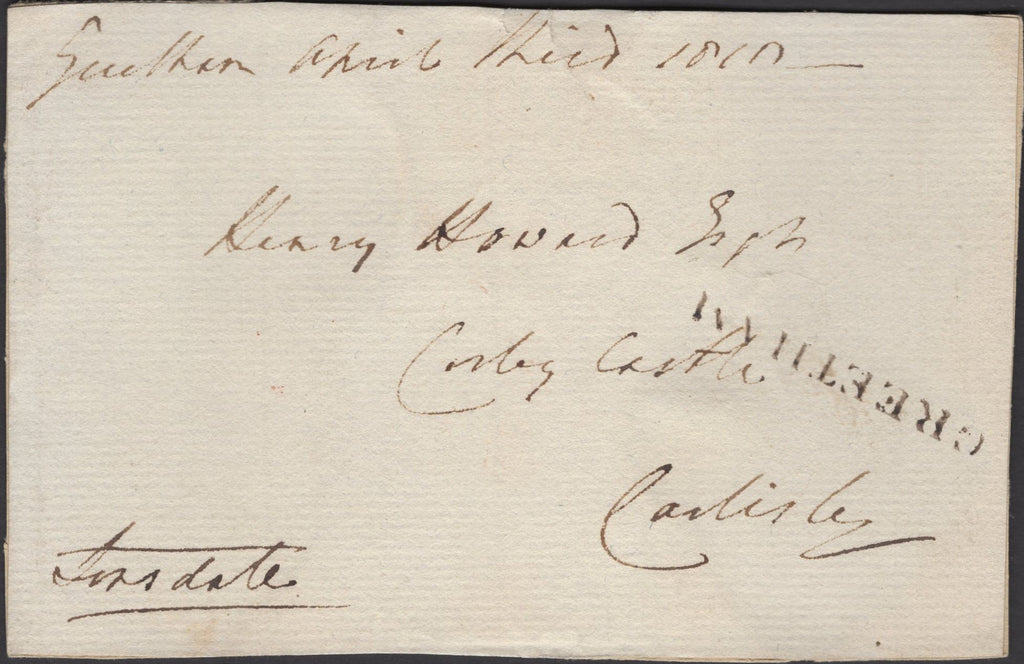 Greetham April third 1818
Henry Howard Esqr
Corby Castle
GREETHAM
Carlisle
Lonsdale